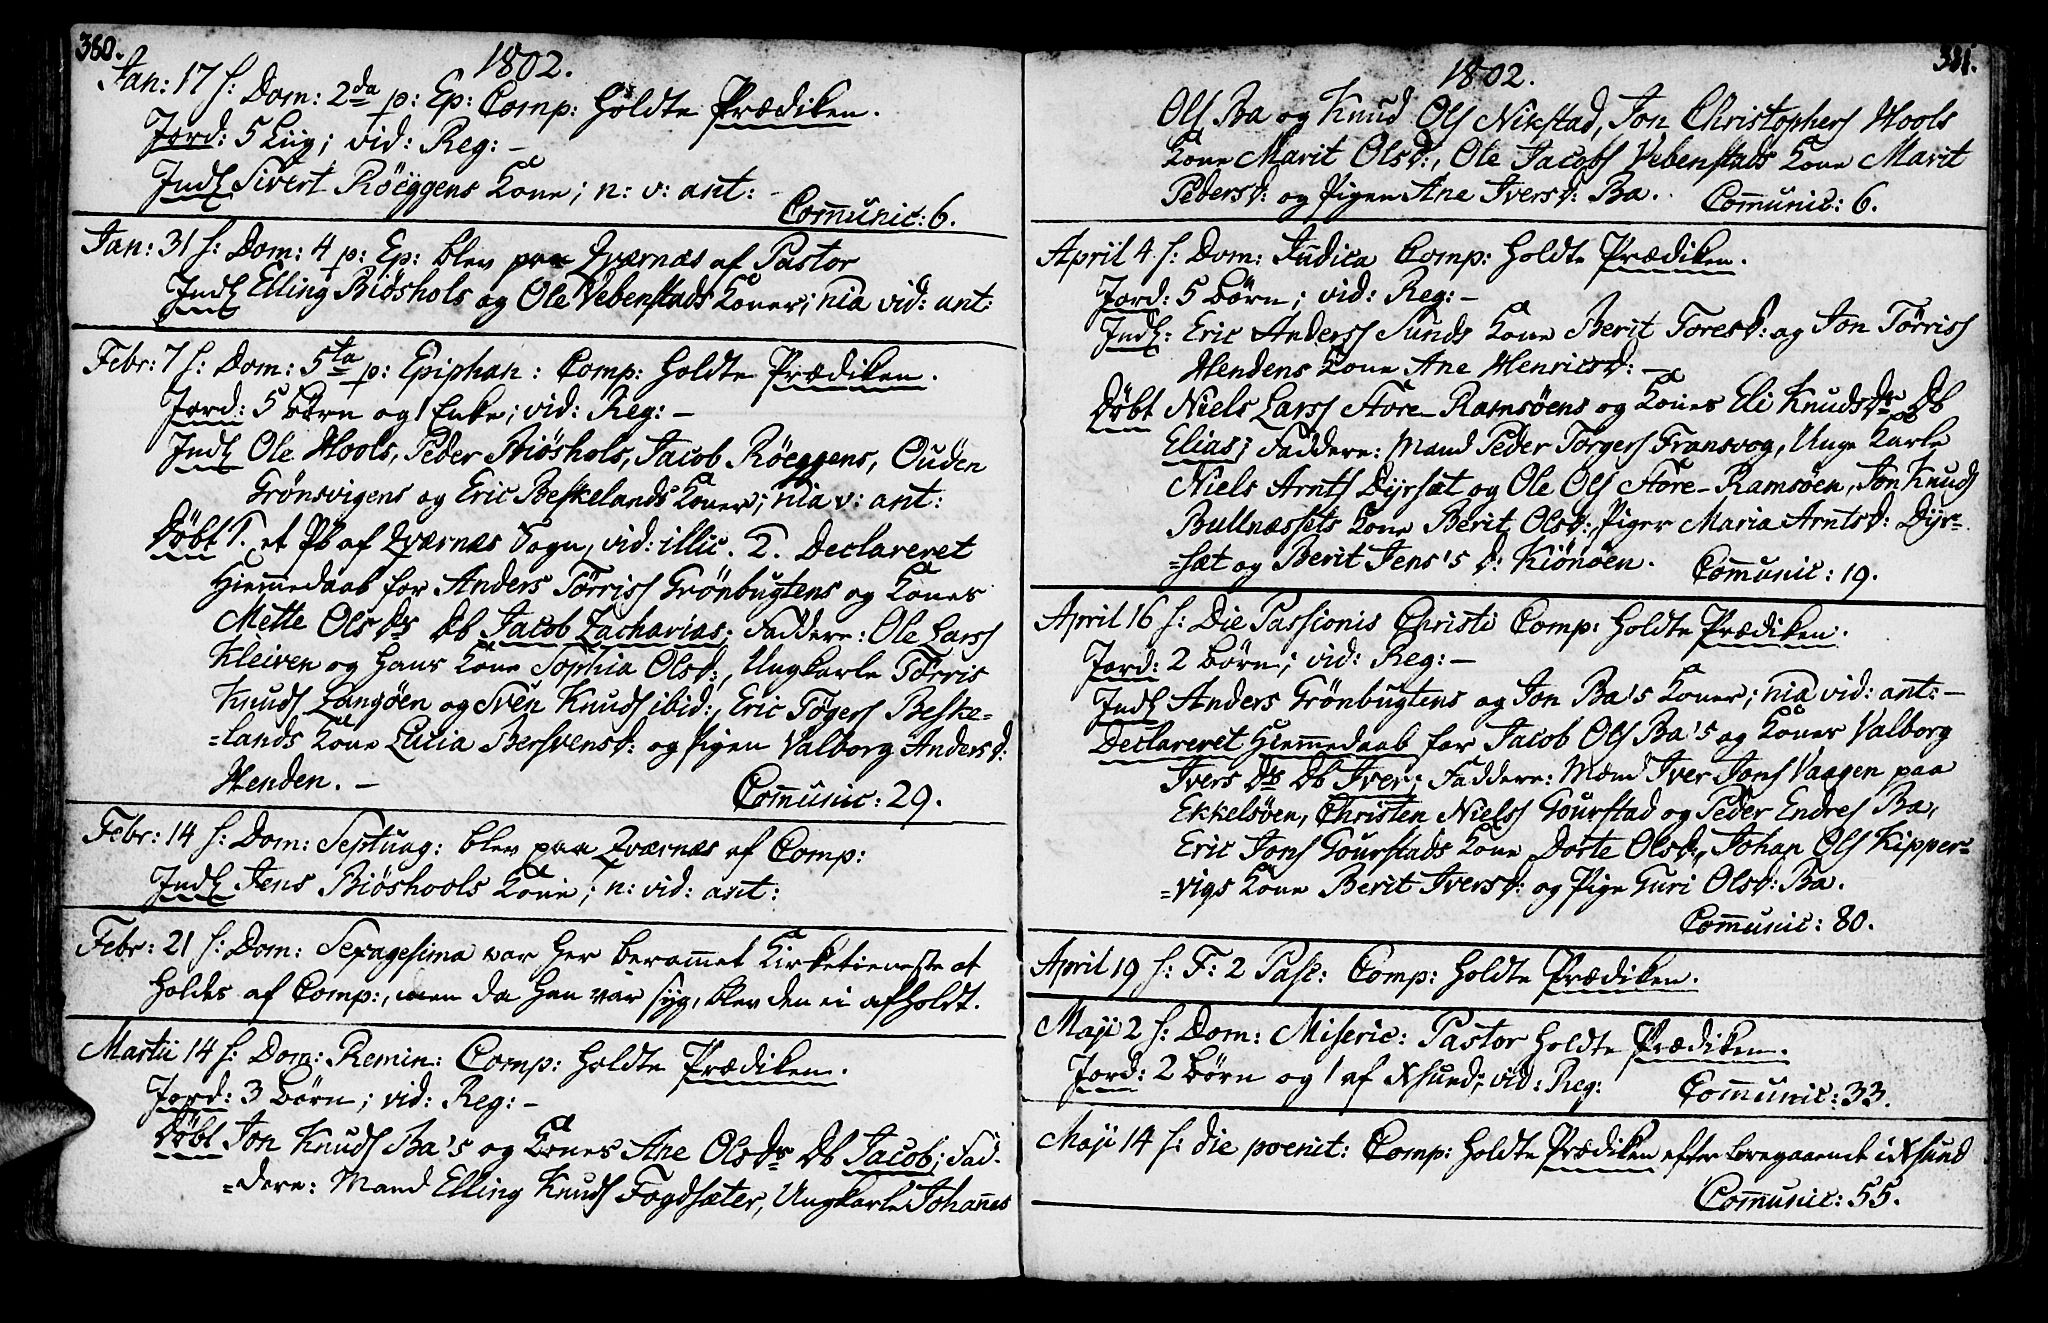 380.
1802.
Jan: 17 s: Dom: 2da p: Ep: Comp: holdte Prædiken.
Jord: 5 Liig; vid: Reg: –
Indl Sivert Röeggens Kone; n: v: ant: –
Com̄unic: 6.
Jan: 31 s: Dom: 4 p: Ep: blev paa Qværnæs af Pastor
Indl Elling Biöshols og Ole Vebenstads Koner; nia vid: ant:
Febr: 7 s: Dom: 5ta p: Epiphan: Comp: holdte Prædiken.
Jord: 5 Börn og 1 Enke; vid: Reg: –
Indl Ole Hools, Peder Biöshols, Jacob Röeggens, Ouden
Grönsvigens og Eric Beskelands Koner; nia v: ant:
Döbt 1. et Pb af Qværnæs Sogn, vid: illic. 2. Declareret
Hiem̄edaab for Anders Törriss Grönbugtens og Kones
Mette Ols Drs Db Jacob Zacharias; Faddere: Ole Larss
Kleiven og hans Kone Sophia Olsd:, Ungkarle Törris
Knuds Langöen og Sven Knuds ibid:, Eric Togers Beske=
=lands Kone Lucia Bersvensd: og Pigen Valborg Andersd:
Henden. –
Com̄unic: 29.
Febr: 14 s: Dom: Septuag: blev paa Qværnæs af Comp:
Indl Jens Biöshools Kone; n: vid: ant:
Febr: 21 s: Dom: Sexagesima var her beram̄et Kirketieneste at
holdes af Comp:, men da han var syg, blev den ei afholdt.
Martii 14 s: Dom: Remin: Comp: holdte Prædiken.
Jord: 3 Börn; vid: Reg: –
Döbt Jon Knuds Ba's og Kones Ane Ols Drs Db Jacob; Fad-
=dere: Mand Elling Knuds Fogdsæter, Ungkarle Johan̄es
381.
1802.
Ols Ba og Knud Ols Nikstad, Jon Christophers Hools
Kone Marit Olsd:, Ole Jacobs Vebenstads Kone Marit
Pedersd: og Pigen Ane Iversd: Ba.
Com̄unic: 6.
April 4 s: Dom: Judica Comp: holdte Prædiken.
Jord: 5 Börn; vid: Reg: –
Indl: Eric Anderss Sunds Kone Berit Toresd: og Jon Törriss
Hendens Kone Ane Henricsd: –
Döbt Niels Larss Store-Ramsöens og Kones Eli Knuds Drs Db
Elias; Faddere: Mand Peder Torgers Fransvog, Unge Karle
Niels Arnts Dyrsæt og Ole Ols Store-Ramsöen, Jon Knuds
Bullnæssets Kone Berit Olsd:, Piger Maria Arntsd: Dyr=
=sæt og Berit Jens's d: Kiönöen.
Com̄unic: 19.
April 16 s: Die Passionis Christi Comp: holdte Prædiken.
Jord: 2 Börn; vid: Reg: –
Indl Anders Grönbugtens og Jon Ba's Koner; nia vid: ant: –
Declareret Hiem̄edaab for Jacob Ols Ba's og Kones Valborg
Ivers Drs Db Iver; Faddere: Mænd Iver Jons Vaagen paa
Ekkelsöen, Christen Nielss Gourstad og Peder Endres Ba,
Eric Jons Gourstads Kone Dorte Olsd:, Johan Ols Kipper=
=vigs Kone Berit Iversd: og Pige Guri Olsd: Ba.
Com̄unic: 80.
April 19 s: F: 2 Pasc: Comp: holdte Prædiken.
Maji 2 s: Dom: Miseric: Pastor holdte Prædiken.
Jord: 2 Börn og 1 af Xsund; vid: Reg:
Com̄unic: 33.
Maji 14 s: die poenit: Comp: holdte Prædiken efter foregaaende i Xsund
Com̄unic: 55.